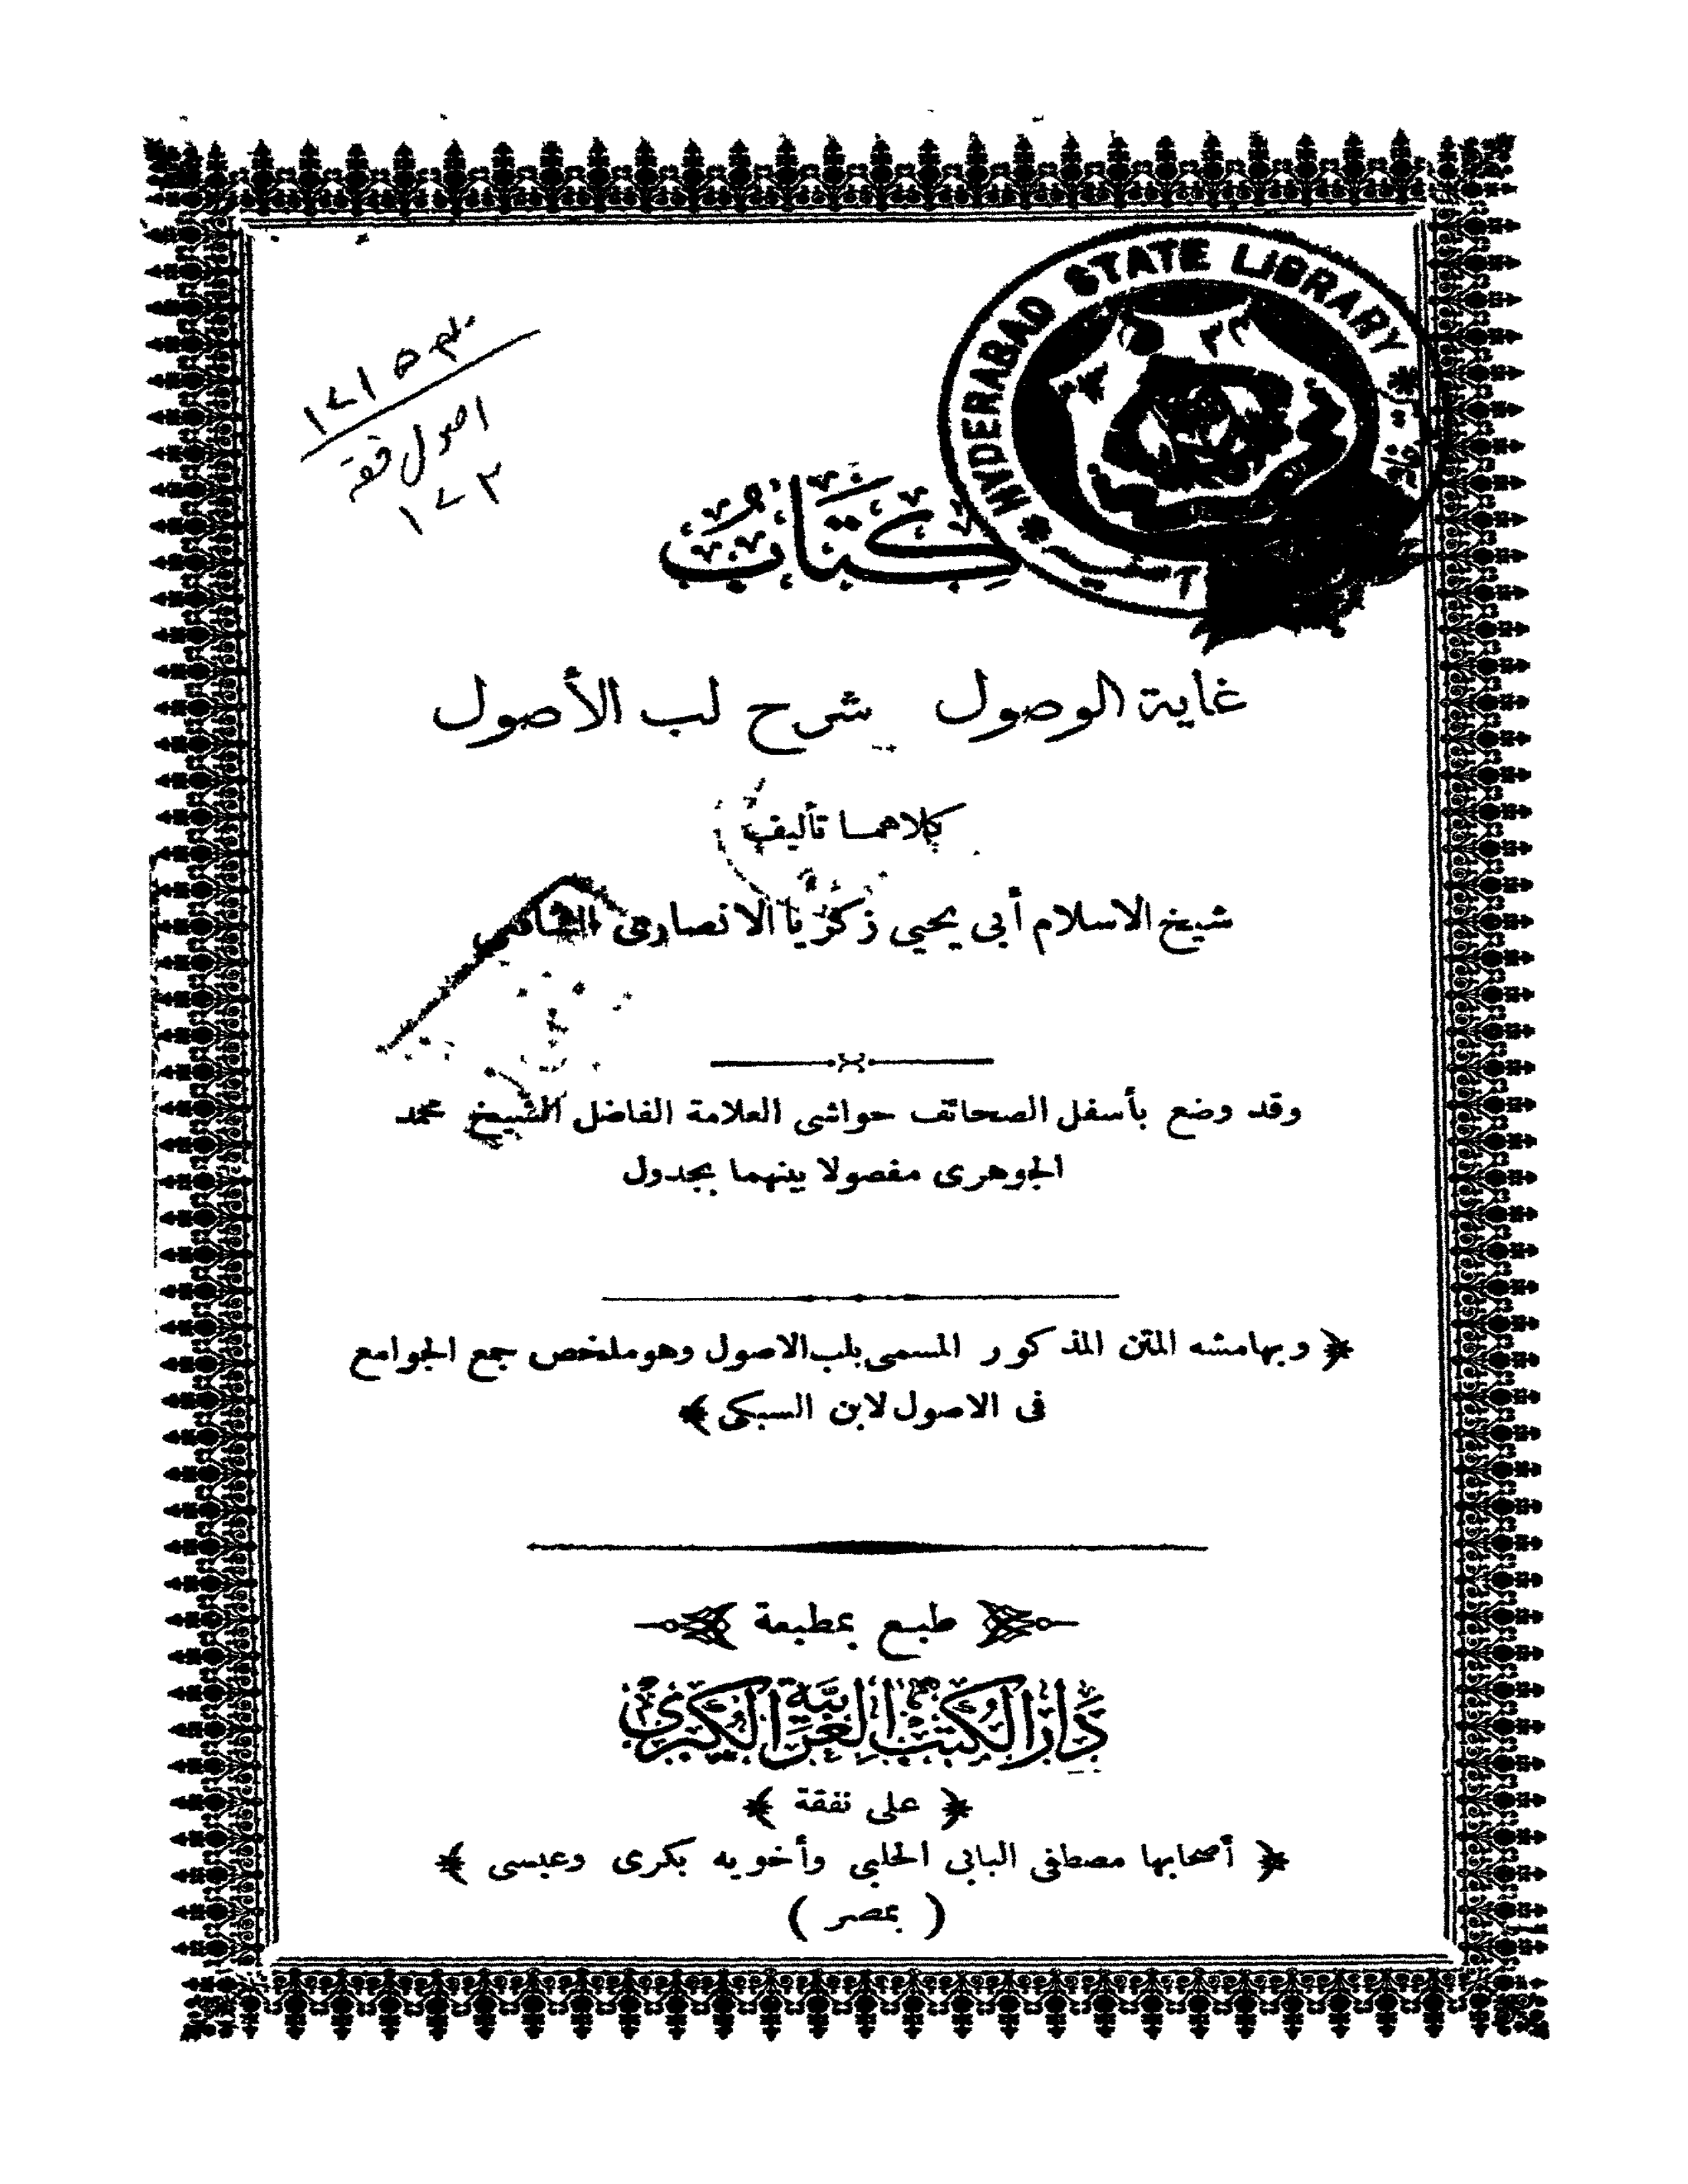 HYDERABAD STATE LIBRARY
اصول فقه
كتاب
غاية الوصول شرح لب الأصول
كلاهما تأليف
شيخ الاسلام أبى يحيى زكريا الانصارى الشافعى
وقد وضع بأسفل الصحائف حواشى العلامة الفاضل الشيخ محمد
الجوهرى مفصولا بينهما بجدول
﴿ وبهامشه المتن المذكور المسمى بلب الاصول وهو ملخص جمع الجوامع
فى الاصول لابن السبكى ﴾
طبع بمطبعة
دار الكتب العربية الكبرى
﴿ على نفقة ﴾
﴿ أصحابها مصطفى البابى الحلبى وأخويه بكرى وعيسى ﴾
( بمصر )